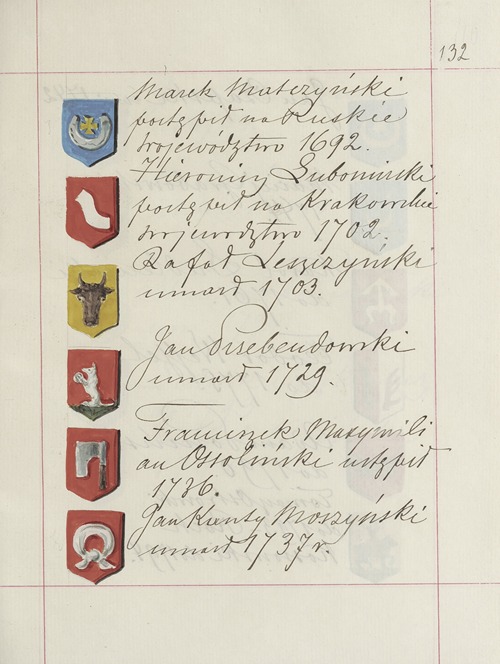 132
Marek Matczyński
postąpił na Ruskie
Województwo 1692.
Hieronim Lubomirski
postąpił na Krakowskie
wojewodztwo 1702.
Rafał Leszczyński
umarł 1703.
Jan Przebendowski
umarł 1729.
Franciszek Maxymili
an Ossoliński ustąpił
1736.
Jan Kanty Moszyński
umarł 1737 r.